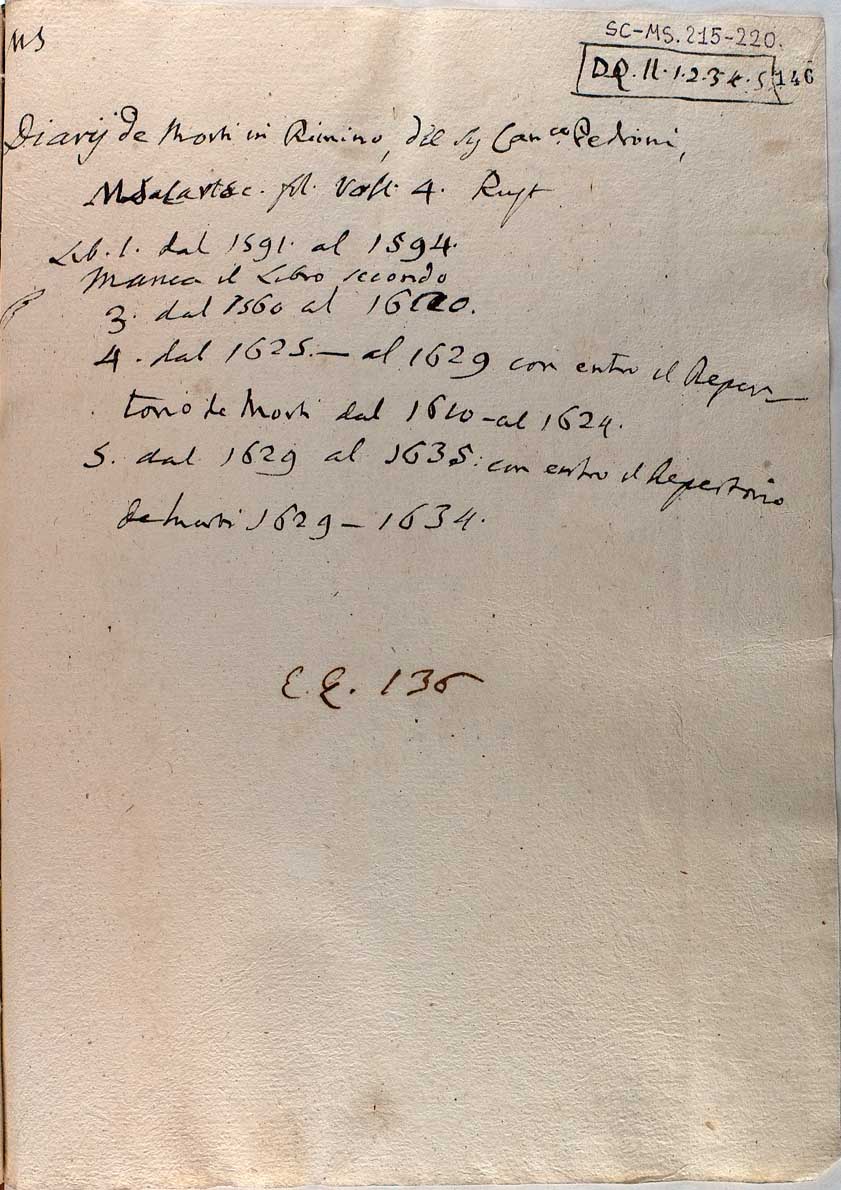 MS
SC-MS. 215-220.
DQ. II. 1. 2. 3. 4. 5 146
Diarij de Morti in Rimino, del Sig Can.co Pedroni,
fil. 4.
Lib. 1. dal 1591. al 1594.
Manca il Libro secondo
3. dal 1560 al
4. dal 1625. — al 1629 con entro il Reper-
torio de Morti dal 1610 - al 1624.
5. dal 1629 al 1635. con entro il Repertorio
de Morti 1629 - 1634.
136